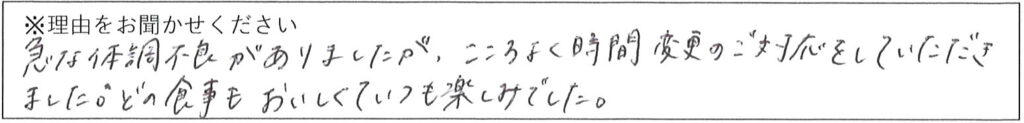 ※理由をお聞かせください
急な体調不良がありましたが、こころよく時間変更のご対応をしていただき
ました。どの食事もおいしくていつも楽しみでした。